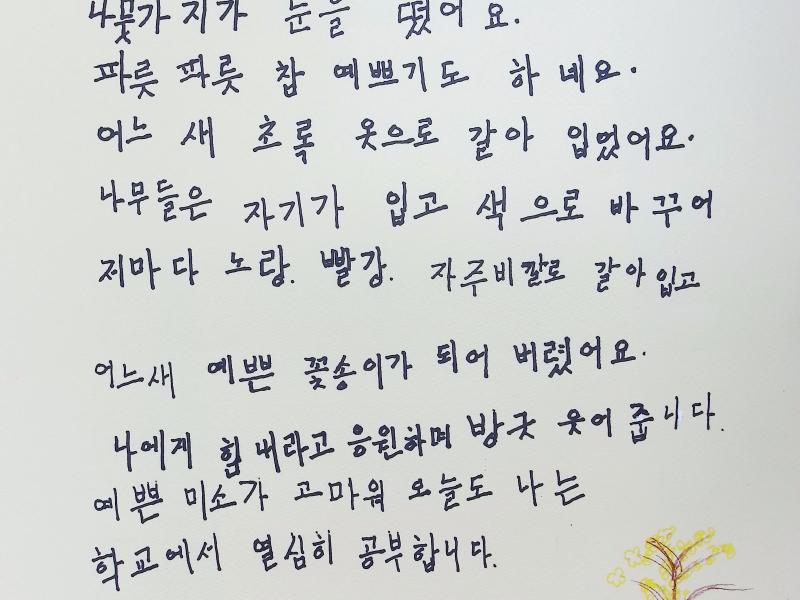 나뭋가지가 눈을 떴어요.
파릇파릇 찹 예쁘기도 하네요.
어느새 초록 옷으로 갈아 입었어요.
나무들은 자기가 입고 색으로 바꾸어
저마다 노랑. 빨강. 자주비깔로 갈아입고
어느새 예쁜 꽃송이가 되어 버렸어요.
나에게 힘내라고 응원하며 방긋 웃어줍니다.
예쁜 미소가 고마워 오늘도 나는
학교에서 열심히 공부합니다.